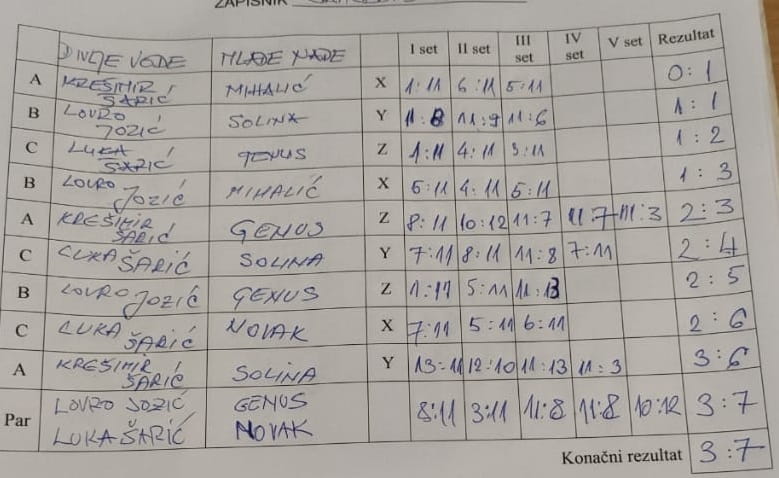 ZAPISNIK
DIVLJE VODE MLADE NADE I set II set III set IV set V set Rezultat
A KREŠIMIR ŠARIĆ MIHALIĆ X 1:11 6:11 5:11 0:1
B LOVRO JOZIĆ SOLINA Y 11:8 11:9 11:6 1:1
C LUKA ŠARIĆ GENUS Z 1:11 4:11 3:11 1:2
B LOVRO JOZIĆ MIHALIĆ X 5:11 4:11 5:11 1:3
A KREŠIMIR ŠARIĆ GENUS Z 8:11 10:12 11:7 11:7 11:3 2:3
C LUKA ŠARIĆ SOLINA Y 7:11 8:11 11:8 7:11 2:4
B LOVRO JOZIĆ GENUS Z 1:11 5:11 11:13 2:5
C LUKA ŠARIĆ NOVAK X 7:11 5:11 6:11 2:6
A KREŠIMIR ŠARIĆ SOLINA Y 13:11 12:10 11:13 11:3 3:6
Par LOVRO JOZIĆ GENUS 8:11 3:11 11:8 11:8 10:12 3:7
LUKA ŠARIĆ NOVAK
Konačni rezultat 3:7